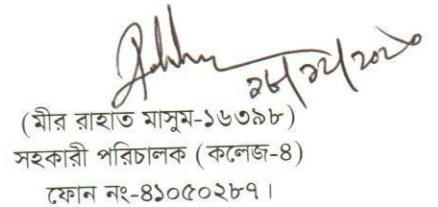 ২৮/১২/২০২০
(মীর রাহাত মাসুম-১৬৩৯৮)
সহকারী পরিচালক (কলেজ-৪)
ফোন নং-৪১০৫০২৮৭।